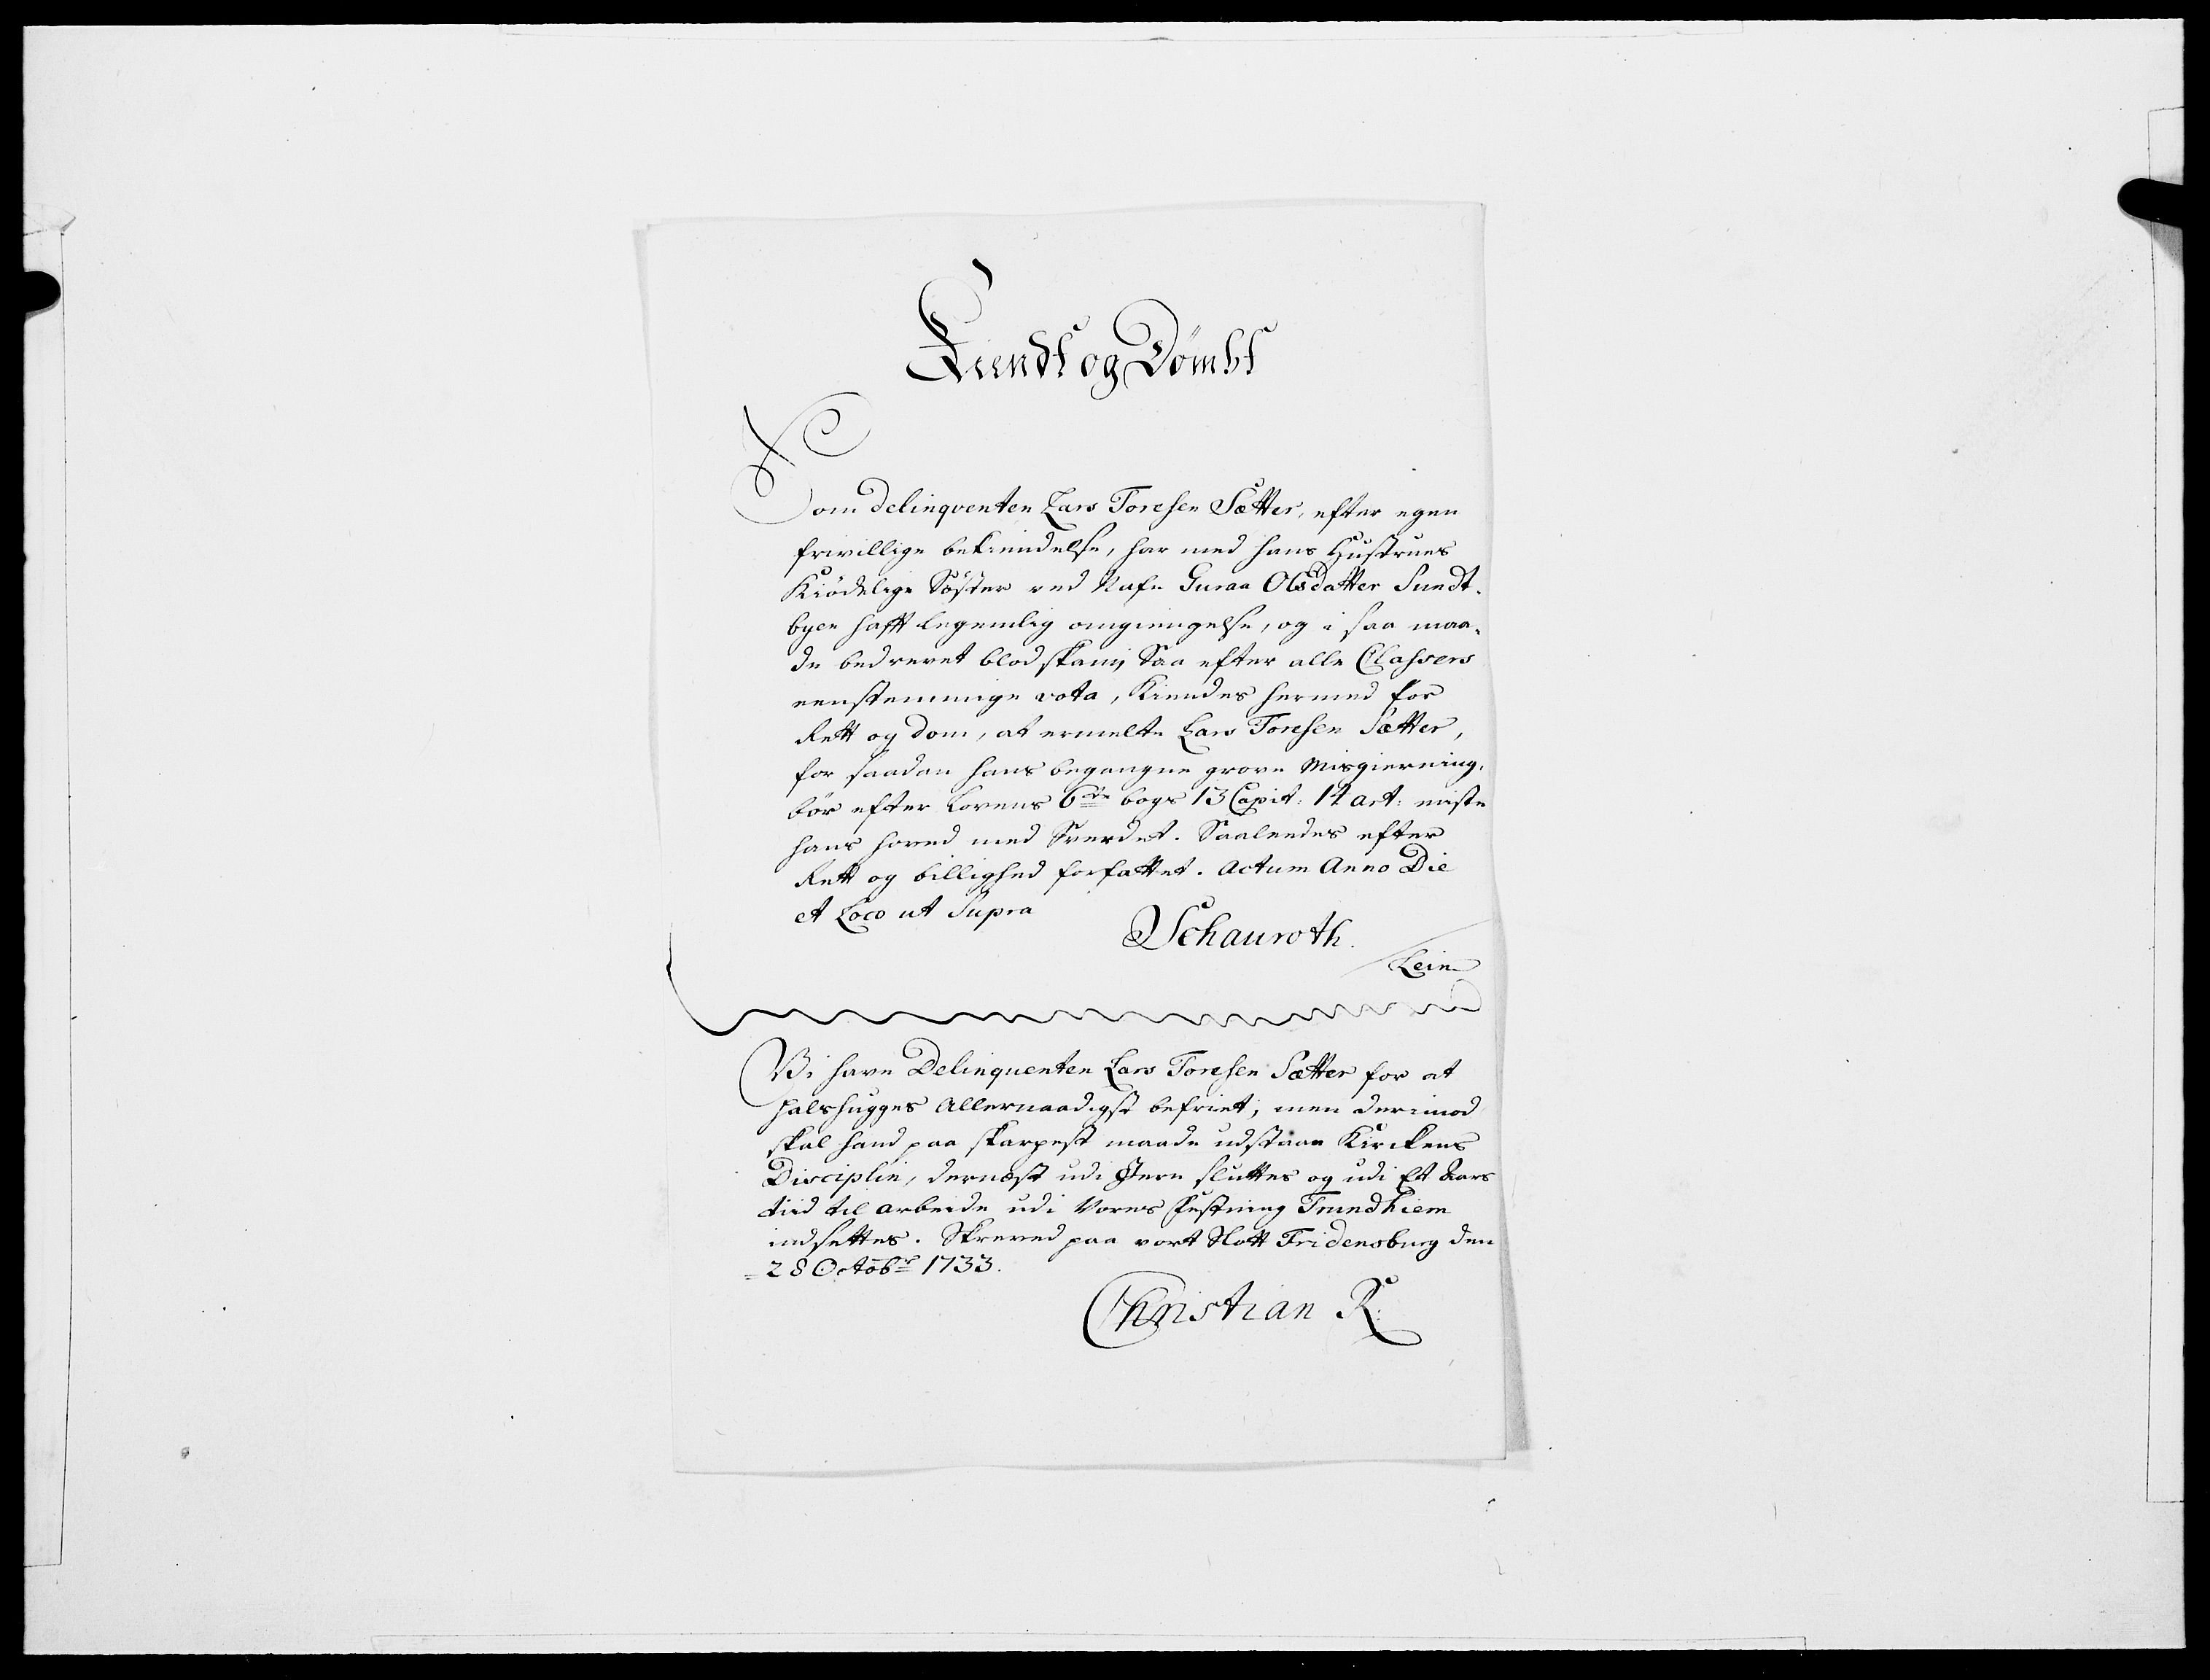 Kiendt og Dømbt
Som delinqventen Lars Toresen Sætter, efter egen
frivillige bekiendelse, har med hans Hustrues
Kiödelige Söster ved Nafn Guraa Olsdatter Sundt-
byen hafft legemlig omgiengelse, og i saa maa-
de bedrevet blodskam, Saa efter alle Classers
eenstemmige vota, Kiendes hermed for
Rett og dom, at ermelte Lars Toresen Sætter,
for saadan hans begangne grove Misgierning,
bör efter Lovens 6te bogs 13 Capit: 14 art: miste
hans hoved med Sverdet. Saaleedes efter
Rett og billighed forfattet. Actum Anno Die
et Loco ut Supra
Schauroth.
Lein
Vi have Delinquenten Lars Toresen Sætter for at
halshugges Allernaadigst befriet; men derimod
skal hand paa skarpest maade udstaae Kirckens
Disciplin, dernæst udi Jern sluttes og udi Et Aars
tiid til arbeide udi Vores Festning Trundhiem
indsettes. Skreved paa vort Slott Fridensburg den
28 Octobr 1733.
Christian R: